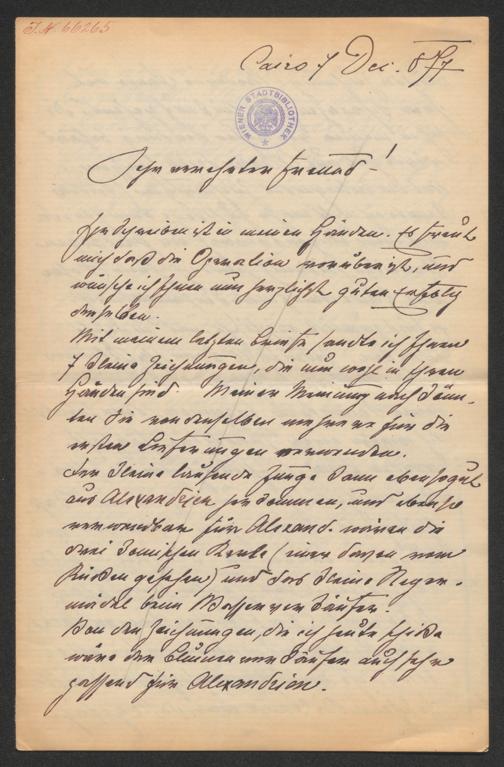 J.N. 66265
Cairo 7 Dec. 877
WIENER STADTBIBLIOTHEK
Sehr verehrter Freund!
Ihr Schreiben ist in meinen Händen. Es freut
mich daß die Operation vorüber ist, und
wünsche ich Ihnen nun herzlichst guten Erfolg
derselben.
Mit meinem letzten Briefe sandte ich Ihnen
7 kleine Zeichnungen, die nun wohl in Ihren
Händen sind. Meiner Meinung nach könn-
ten Sie von denselben mehrere für die
ersten Lieferungen verwenden.
Der kleine laufende Junge kann ebensogut
aus Alexandrien herkommen, und ebenso
verwendbar für Alexand. wären die
drei komischen Kerle (einer davon vom
Rücken gesehen) und das kleine Neger-
mädel beim Wasserverkäufer.
Von den Zeichnungen, die ich heute schicke
wäre der Blumenverkäufer auch sehr
passend für Alexandrien.